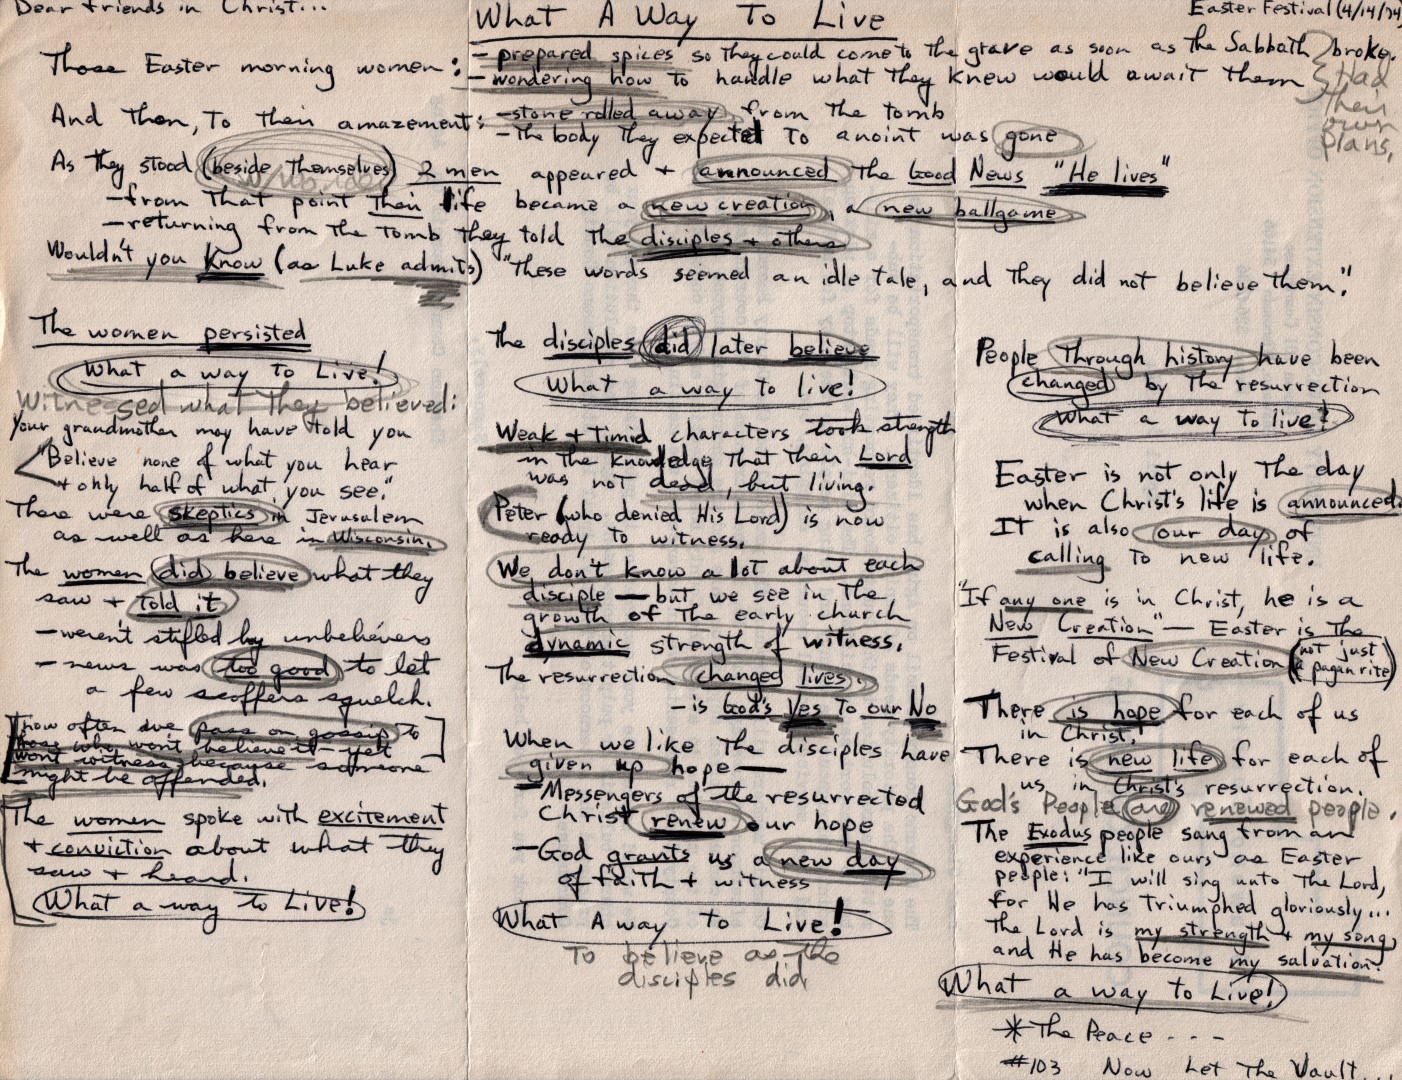 Dear Friends in Christ...
What A Way To Live
Easter Festival (4/14/74)
Those Easter morning women:
- prepared spices so they could come to the grave as soon as the Sabbath broke.
- wondering how to handle what they knew would await them
Had
their
own
plans,
And then, to their amazement:
- stone rolled away from the tomb
- the body they expected to anoint was gone
As they stood (beside themselves) 2 men appeared + announced the Good News "He lives"
- from that point their life became a new creation, a new ballgame
- returning from the tomb they told the disciples + others
Wouldn't you know (as Luke admits) "These words seemed an idle tale, and they did not believe them."
The women persisted
What a way to Live!
Witnessed what they believed:
Your grandmother may have told you
"Believe none of what you hear
+ only half of what you see."
There were skeptics in Jerusalem
as well as here in Wisconsin.
The women did believe what they
saw + told it
- weren't stifled by unbelievers
- news was too good to let
a few scoffers squelch.
[how often we pass on gossip to]
those who won't believe it - yet
won't witness because someone
might be offended.
The women spoke with excitement
+ conviction about what they
saw + heard.
What a way to Live!
The disciples did later believe
What a way to live!
Weak + timid characters took strength
in the knowledge that their Lord
was not dead, but living.
Peter (who denied His Lord) is now
ready to witness.
We don't know a lot about each
disciple — but we see in the
growth of the early church
dynamic strength of witness.
The resurrection changed lives.
- is God's Yes to our No
When we like the disciples have
given up hope —
- Messengers of the resurrected
Christ renew our hope
- God grants us a new day
of faith + witness
What A way to Live!
To believe as the
disciples did
People through history have been
changed by the resurrection
What a way to live!
Easter is not only the day
when Christ's life is announced.
It is also our day of
calling to new life.
"If any one is in Christ, he is a
New Creation" — Easter is the
Festival of New Creation (not just
a pagan rite)
There is hope for each of us
in Christ!
There is new life for each of
us in Christ's resurrection.
God's People are renewed people.
The Exodus people sang from an
experience like ours as Easter
people: "I will sing unto the Lord,
for He has triumphed gloriously...
the Lord is my strength + my song
and He has become my salvation."
What a way to Live!
* The Peace - - - -
#103 Now Let The Vault...